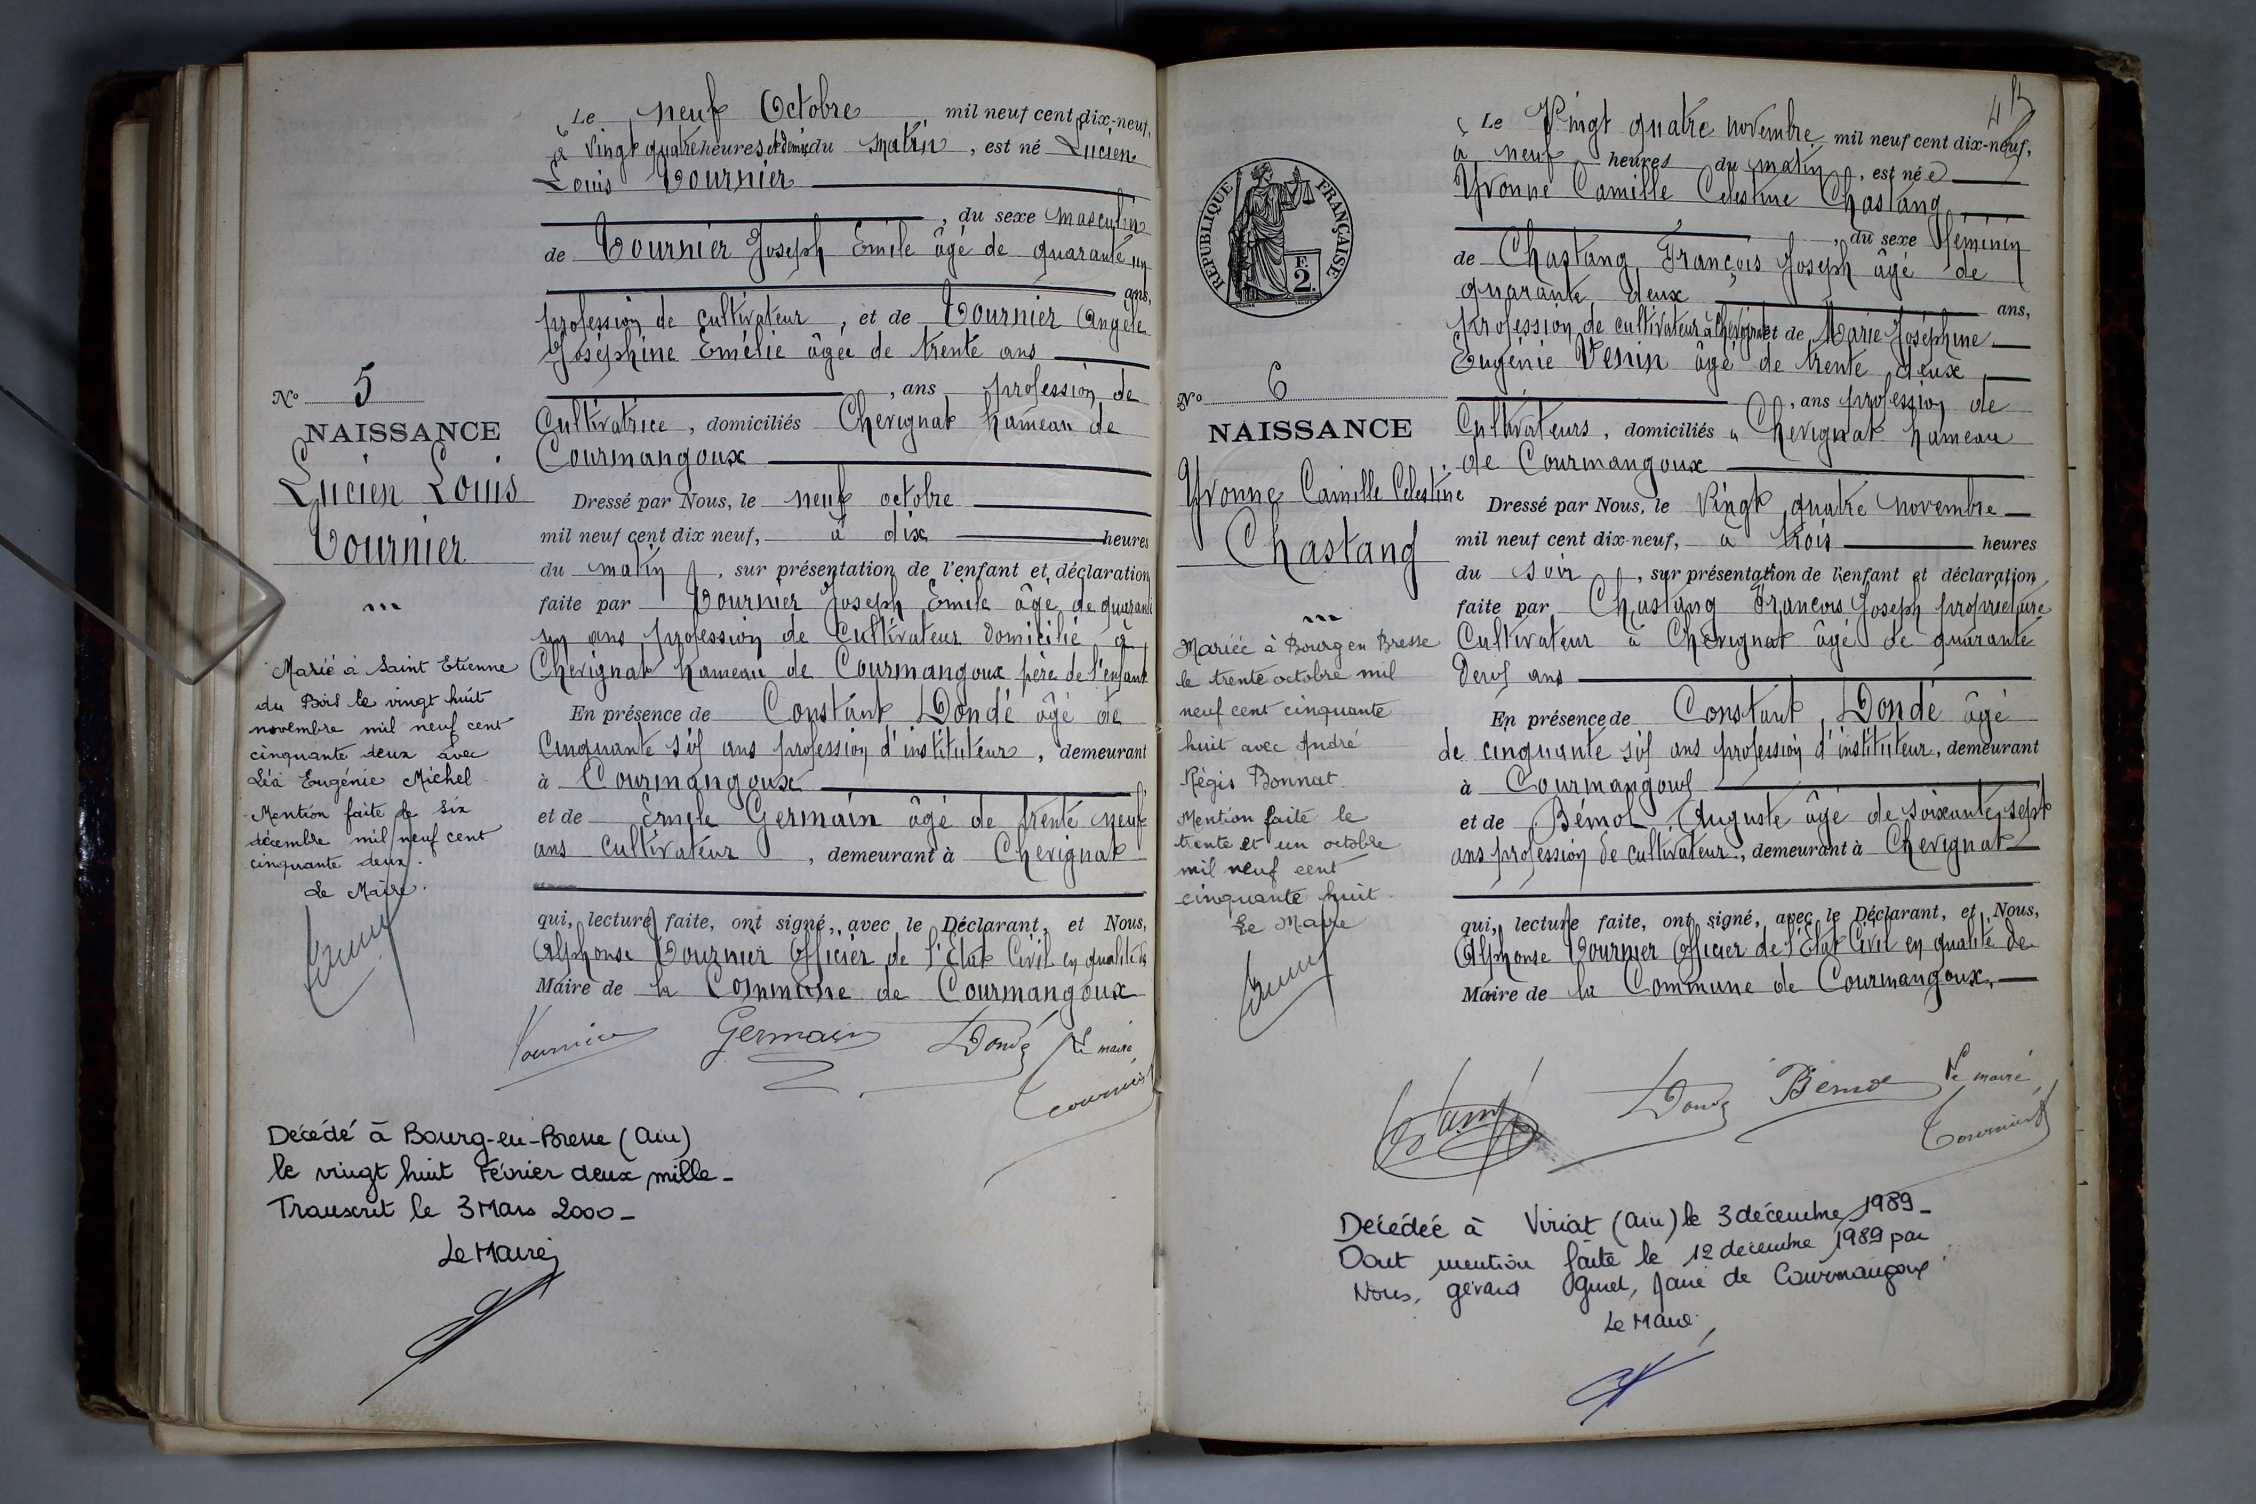 Le neuf Octobre mil neuf cent dix-neuf,
à vingt quatre heures et demie du matin, est né Lucien
Louis Tournier
, du sexe masculin
de Tournier Joseph Emile âgé de quarante un
ans,
profession de cultivateur, et de Tournier Angèle
Joséphine Emélie âgée de trente ans
, ans profession de
Cultivatrice, domiciliés Chevignat hameau de
Courmangoux
Dressé par Nous, le neuf octobre
mil neuf cent dix neuf, à dix heures
du matin, sur présentation de l'enfant et déclaration
faite par Tournier Joseph Emile âgé de quarante
un ans profession de Cultivateur domicilié à
Chevignat hameau de Courmangoux père de l'enfant
En présence de Constant Dondé âgé de
Cinquante six ans profession d'instituteur, demeurant
à Courmangoux,
et de Emile Germain âgé de trente neuf
ans cultivateur, demeurant à Chevignat
qui, lecture faite, ont signé, avec le Déclarant, et Nous,
Alphonse Tournier Officier de l'Etat Civil en qualité de
Maire de la Commune de Courmangoux
Tournier Germain Dondé Le maire
Tournier
No 5
NAISSANCE
Lucien Louis
Tournier
Marié à Saint Etienne
du Bois le vingt huit
novembre mil neuf cent
cinquante deux avec
Léa Eugénie Michel
Mention faite le six
décembre mil neuf cent
cinquante deux.
Le Maire.
Décédé à Bourg-en-Bresse (Ain)
le vingt huit Février deux mille -
Transcrit le 3 Mars 2000 -
Le Maire,
4
Le Vingt quatre novembre mil neuf cent dix-neuf,
à neuf heures du matin, est née
Yvonne Camille Célestine Chastang
, du sexe féminin
de Chastang François Joseph âgé de
quarante deux ans,
profession de cultivateur à Chevignat et de Marie Joséphine
Eugénie Venin âgé de trente deux
, ans profession de
Cultivateurs, domiciliés à Chevignat hameau
de Courmangoux
Dressé par Nous, le Vingt quatre novembre
mil neuf cent dix-neuf, à trois heures
du soir, sur présentation de l'enfant et déclaration
faite par Chastang François Joseph propriétaire
Cultivateur à Chevignat âgé de quarante
deux ans
En présence de Constant Dondé âgé
de cinquante six ans profession d'instituteur, demeurant
à Courmangoux
et de Bémol Auguste âgé de soixante-sept
ans profession de cultivateur, demeurant à Chevignat
qui, lecture faite, ont signé, avec le Déclarant, et Nous,
Alphonse Tournier Officier de l'Etat Civil en qualité de
Maire de la Commune de Courmangoux.
Dondé Le maire,
Tournier
REPUBLIQUE FRANÇAISE
F
2.
No 6
NAISSANCE
Yvonne Camille Célestine
Chastang
Mariée à Bourg en Bresse
le trente octobre mil
neuf cent cinquante
huit avec André
Régis Bonnat.
Mention faite le
trente et un octobre
mil neuf cent
cinquante huit.
Le Maire
Décédée à Viriat (Ain) le 3 décembre 1989 -
Dont mention faite le 12 décembre 1989 par
Nous, gérard Maire de Courmangoux
Le Maire